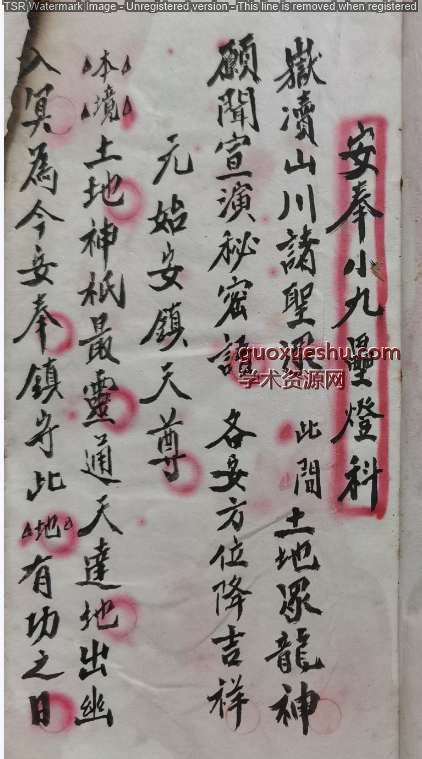 TSR Watermark Image - Unregistered version - This line is removed when registered
安奉小九壘燈科
嶽瀆山川諸聖眾 此間土地眾龍神
願聞宣演秘密語 各安方位降吉祥
元始安鎮天尊
本境土地神祇最靈通天達地出幽
入冥為今安奉鎮守此地有功之日
guoxueshu.com
学术资源网